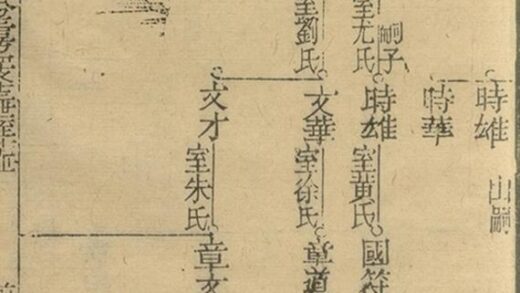 時雄
出嗣
時華
嗣子
室尤氏
時雄
室黃氏
國符
室劉氏
文華
室徐氏
章道
文才
室朱氏
章文